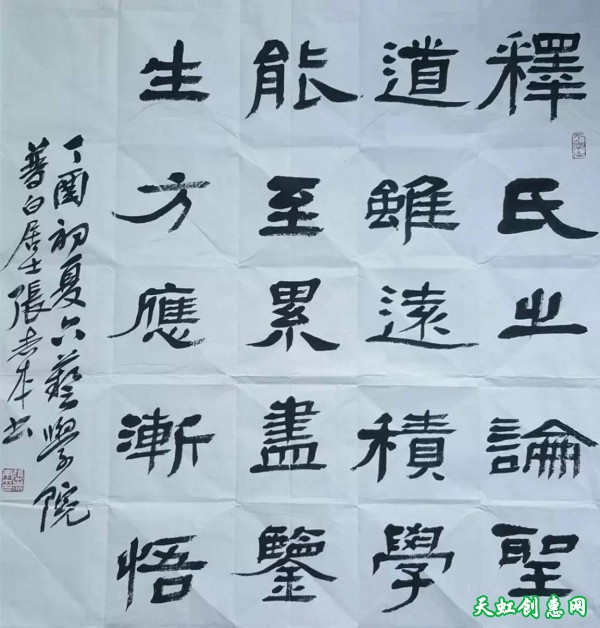 釋氏之論聖
道雖遠積學
能至累盡鑒
生方應漸悟
丁酉初夏六藝學院
普白居士張志本书
天虹创惠网